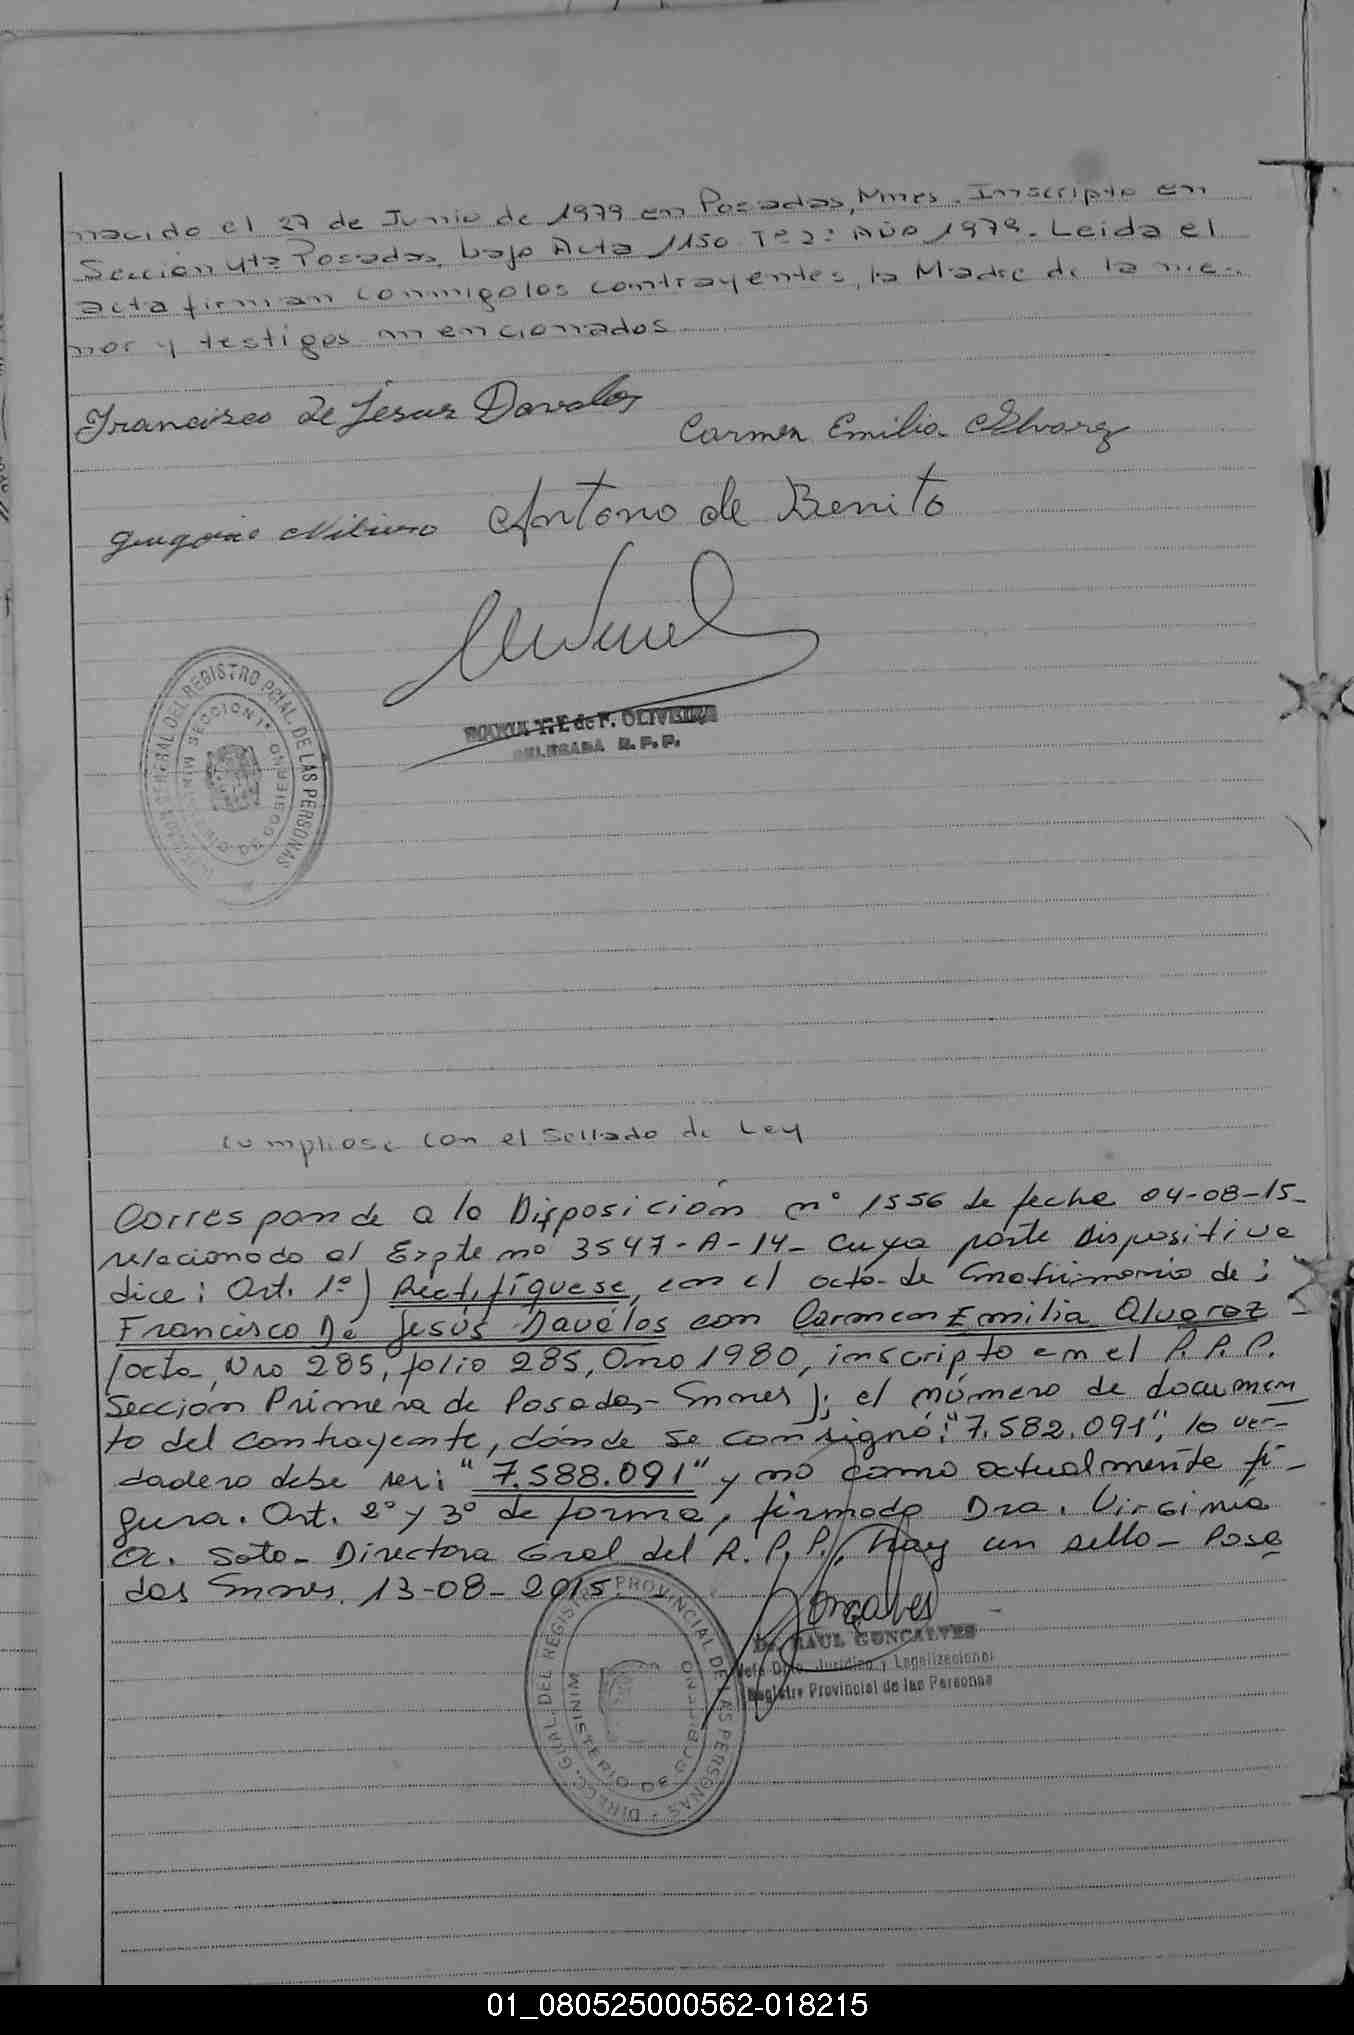 nacido el 27 de Junio de 1979 en Posadas, Mnes. Inscripto en
Sección 4ta Posadas, bajo Acta 1150 Tº 2: Año 1979. Leida el
acta firman conmigo los contrayentes, la Madre de la me-
nor y testigos mencionados
Francisco de Jesus Davalos
Carmen Emilia Alvarez
Antonio de Benito
REGISTRO PCIAL. DE LAS PERSONAS
SECCION 1ª
DE GOBIERNO
MARIA T. F. de F. OLIVEIRA
DELEGADA R. P. P.
Cumpliose con el Sellado de Ley
Corresponde a la Disposición nº 1556 de fecha 04-08-15-
relacionado al Expte nº 3547-A-14- cuya parte dispositiva
dice: Art. 1º) Rectifíquese, en el acta de matrimonio de:
Francisco De Jesús Daválos con Carmen Emilia Alvarez -
(acta, Nro 285, folio 285, Año 1980, inscripto en el R. P. P.
Sección Primera de Posadas- Mnes); el número de documen
to del contrayente, dónde se consignó: "7.582.091", lo ver-
dadero debe ser: "7.588.091" y no como actualmente fi-
gura. Art. 2º y 3º de forma, firmado Dra. Virginia
A. Soto- Directora Gral del R. P. P., hay un sello- Posa
das Mnes. 13-08-2015.
DIRECC. GRAL. DEL REGISTRO PROVINCIAL DE LAS PERSONAS
MINISTERIO DE GOBIERNO
Goncalves
Dr. RAUL GONCALVES
Jefe Dpto. Jurídico y Legalizaciones
Registro Provincial de las Personas
01_080525000562-018215